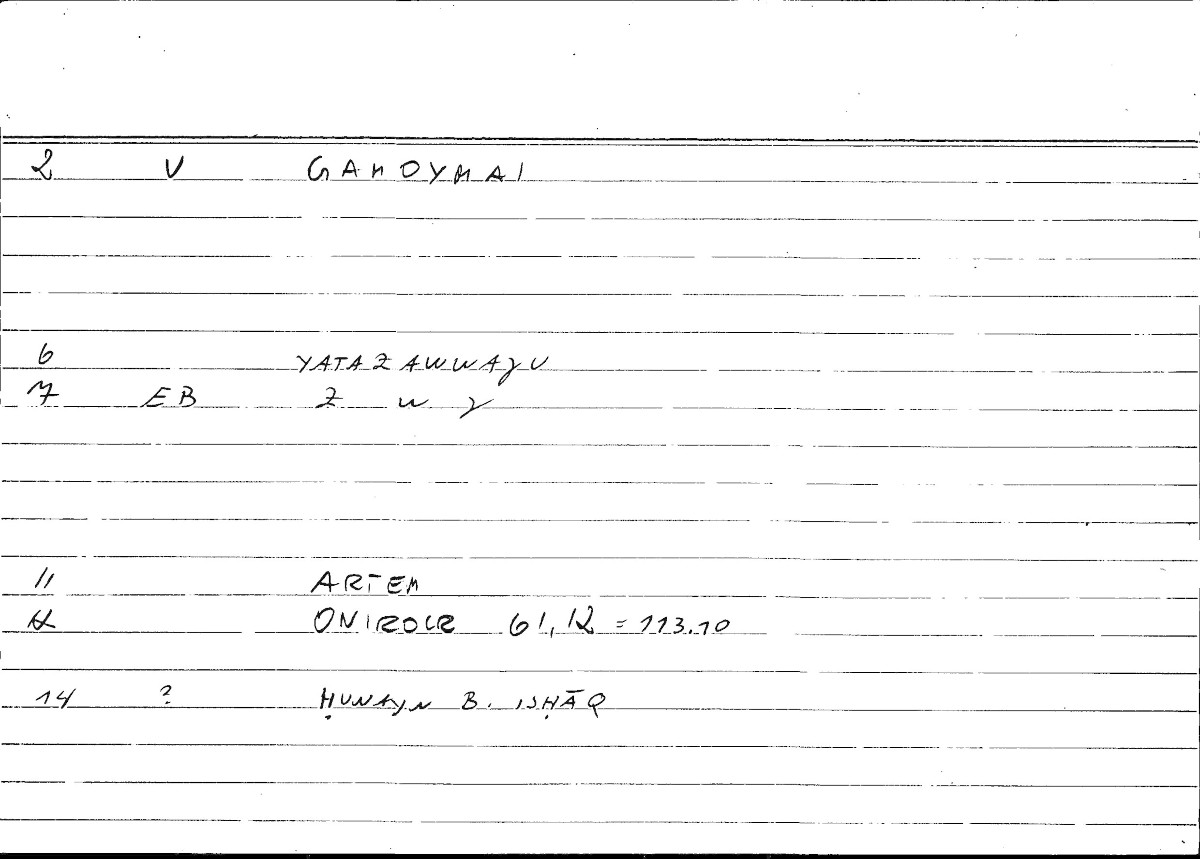 2 V GAMOYMAI
6 YATAZAWWAJU
7 EB Z W J
11 ARTEM
12 ONIROCR 61,12 = 113.10
14 ? ḤUNAYN B. ISḤĀQ